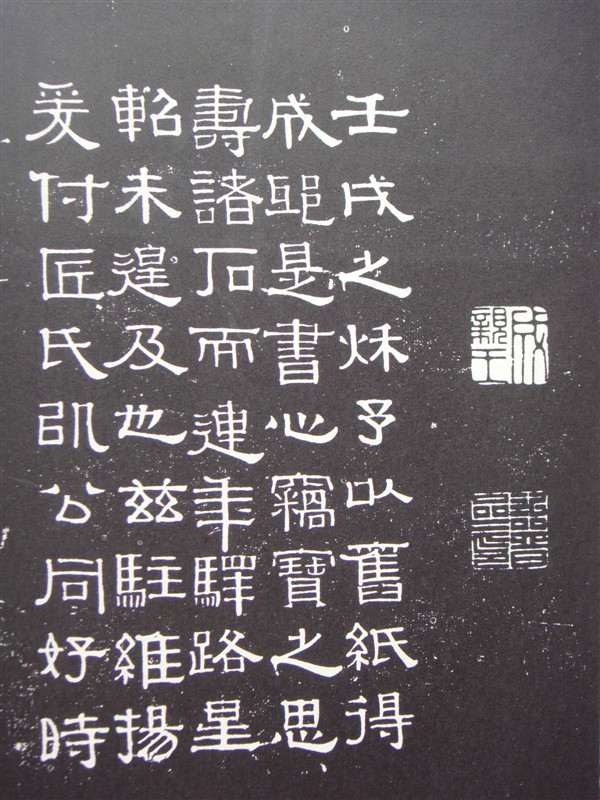 成親王
壬戌之秌予以舊紙得
成邸是書心竊寶之思
壽諸石而連年驛路星
軺未遑及也茲駐維揚
爰付匠氏以公同好時